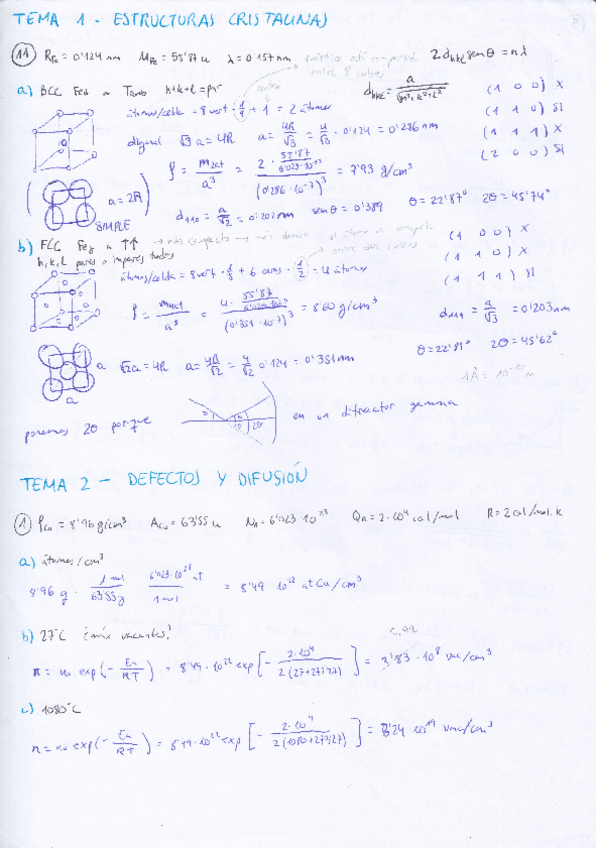 TEMA 1 - ESTRUCTURAS CRISTALINAS
11 R_Fe = 0'124 nm M_Fe = 55'87 u λ = 0'157 nm 2 d_hkl senθ = nλ
a) BCC Fe α h+k+l = par d_hkl = a/√(h²+k²+l²) (1 0 0) X
átomos/celda = 8 vert · 1/8 + 1 = 2 átomos (1 1 0) SI
diagonal √3 a = 4R a = 4R/√3 = 4/√3 · 0'124 = 0'286 nm (1 1 1) X
ρ = m_2at/a³ = 2 · 55'87/6'023·10²³ / (0'286·10⁻⁷)³ = 7'93 g/cm³ (2 0 0) SI
(a = 2R)
SIMPLE d₁₁₀ = a/√2 = 0'202 nm senθ = 0'389 θ = 22'87° 2θ = 45'74°
b) FCC Fe γ a ↑↑ (1 0 0) X
h, k, l pares o impares todos (1 1 0) X
átomos/celda = 8 vert · 1/8 + 6 caras · 1/2 = 4 átomos (1 1 1) SI
ρ = m_4at/a³ = 4 · 55'87/6'023·10²³ / (0'351·10⁻⁷)³ = 8'60 g/cm³ d₁₁₁ = a/√3 = 0'203 nm
a √2 a = 4R a = 4R/√2 = 4/√2 0'124 = 0'351 nm θ = 22'81° 2θ = 45'62°
a 1Å = 10⁻¹⁰ m
ponemos 2θ porque θ θ 2θ en un difractor gamma
TEMA 2 - DEFECTOS Y DIFUSIÓN
1 ρ_Cu = 8'96 g/cm³ A_Cu = 63'55 u N_A = 6'023·10²³ Q_A = 2·10⁴ cal/mol R = 2 cal/mol·K
a) átomos/cm³
8'96 g · 1 mol/63'55 g · 6'023·10²³ at/1 mol = 8'49 · 10²² at Cu/cm³
b) 27°C ¿nº vacantes?
n = n₀ exp(-En/RT) = 8'49 · 10²² exp[-2·10⁴/2(27+273'27)] = 3'83 · 10⁸ vac/cm³
c) 1080°C
n = n₀ exp(-En/RT) = 8'49·10²² exp[-2·10⁴/2(1080+273'27)] = 5'24 · 10¹⁹ vac/cm³